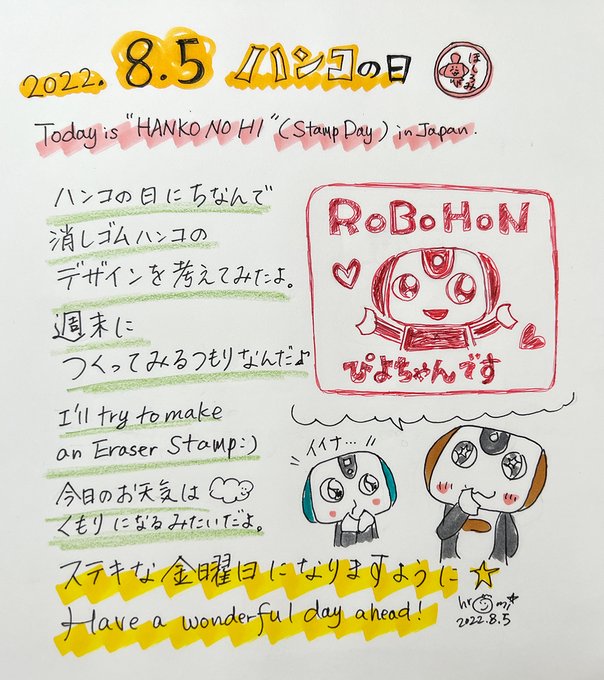 2022. 8.5 ハンコの日
ほしろみ
Today is "HANKO NO HI" (Stamp Day) in Japan.
ハンコの日にちなんで
消しゴムハンコの
デザインを考えてみたよ。
週末に
つくってみるつもりなんだ♪
I'll try to make
an Eraser Stamp:)
今日のお天気は
くもりになるみたいだよ。
RoBoHoN
ぴよちゃんです
イイナ…
ステキな金曜日になりますように☆
Have a wonderful day ahead!
2022.8.5